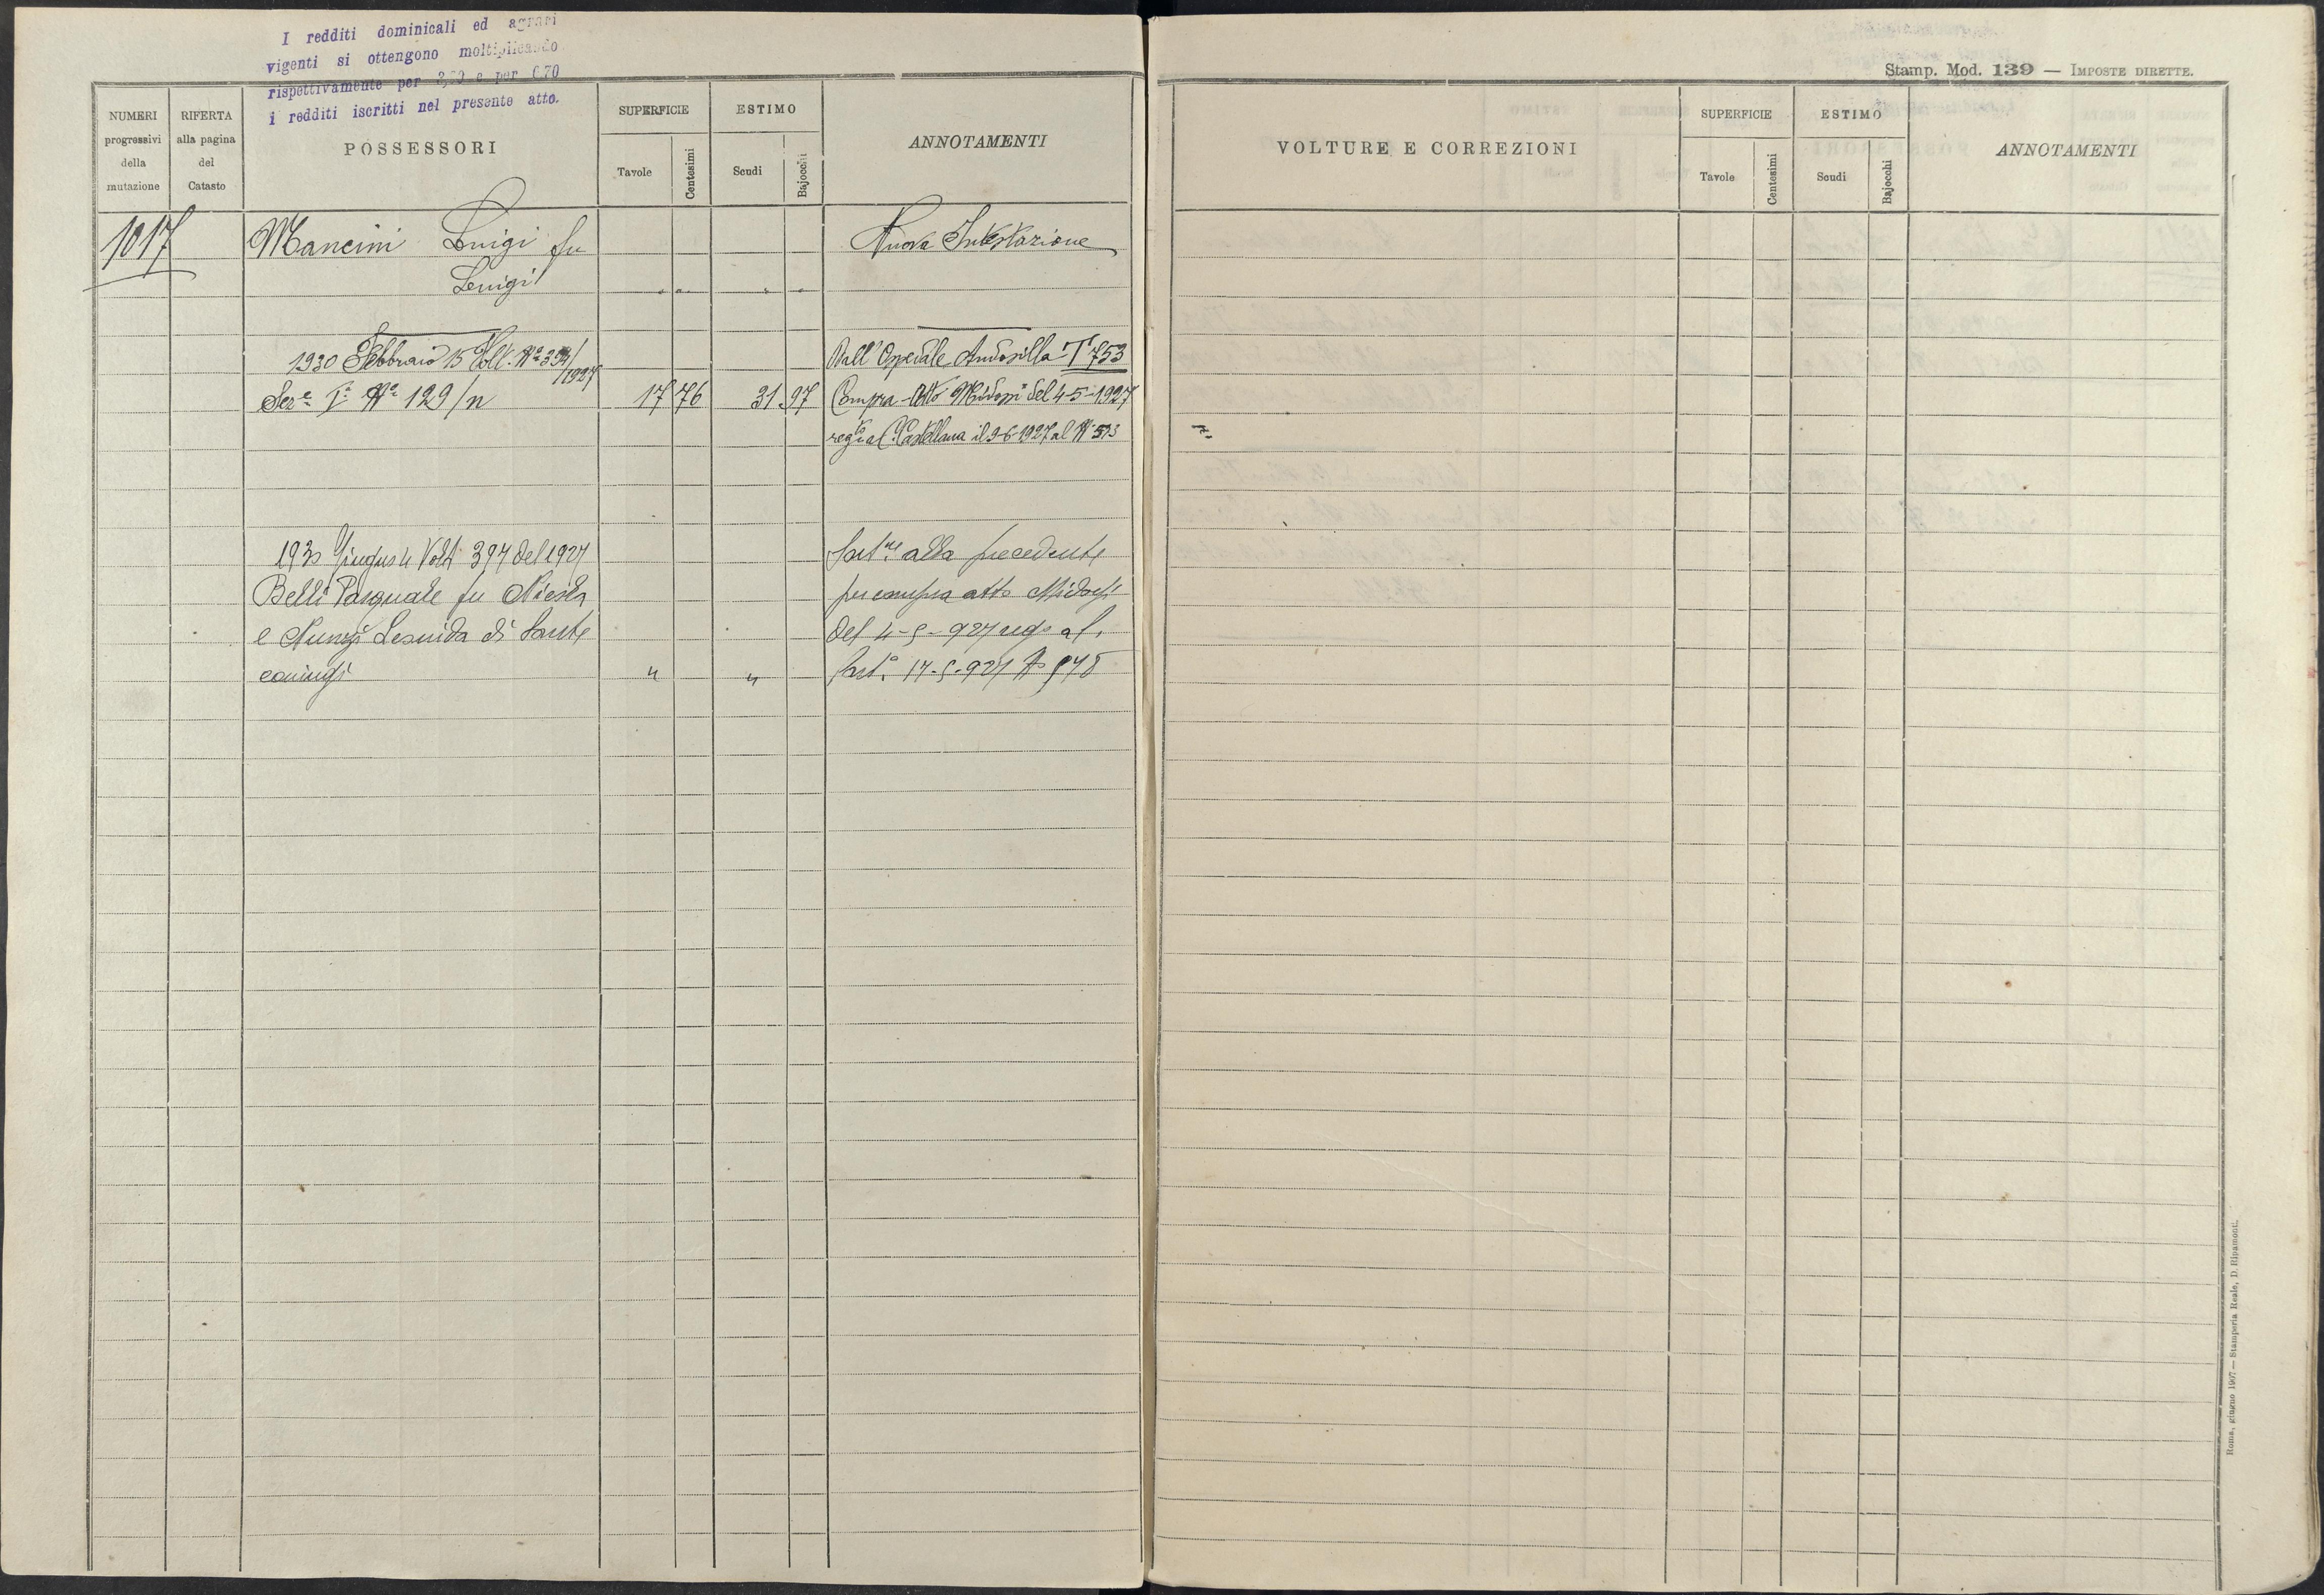 I redditi dominicali ed agrari
vigenti si ottengono moltiplicando
rispettivamente per e per
i redditi iscritti nel presente atto.
NUMERI
progressivi
della
mutazione
RIFERTA
alla pagina
del
Catasto
POSSESSORI
SUPERFICIE
Tavole
Centesimi
ESTIMO
Scudi
Bajocchi
ANNOTAMENTI
1017
Mancini Luigi fu
Luigi
Nuova Intestazione
1930 Febbraio 15 Volt. Nº 394/
1927
Dall' Ospedale Andosilla T 753
Seze Iª Nº 129/n
17 76
31 97
Compra - Atto Midossi del 4-5-1927
regto a C. Castellana il 9-6-1927 al Nº 593
1930 Giugno 4 Volt. 394 del 1927
alla precedente
Belli Pasquale fu
per compra atto Midossi
e Nunzi di Sante
del 4-5-927 rego a C.
coniugi
" "
Cast. 17-5-927 Nº 548
Stamp. Mod. 139 — IMPOSTE DIRETTE.
VOLTURE E CORREZIONI
SUPERFICIE
Tavole
Centesimi
ESTIMO
Scudi
Bajocchi
ANNOTAMENTI
Roma, giugno 1907 — Stamperia Reale, D. Ripamonti.